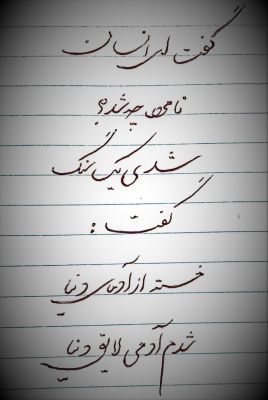 گفت ای انسان
نامی چه شده؟
شدی یک سنگ
گفت :
خسته از آدمای دنیا
شدم آدمی لایق دنیا